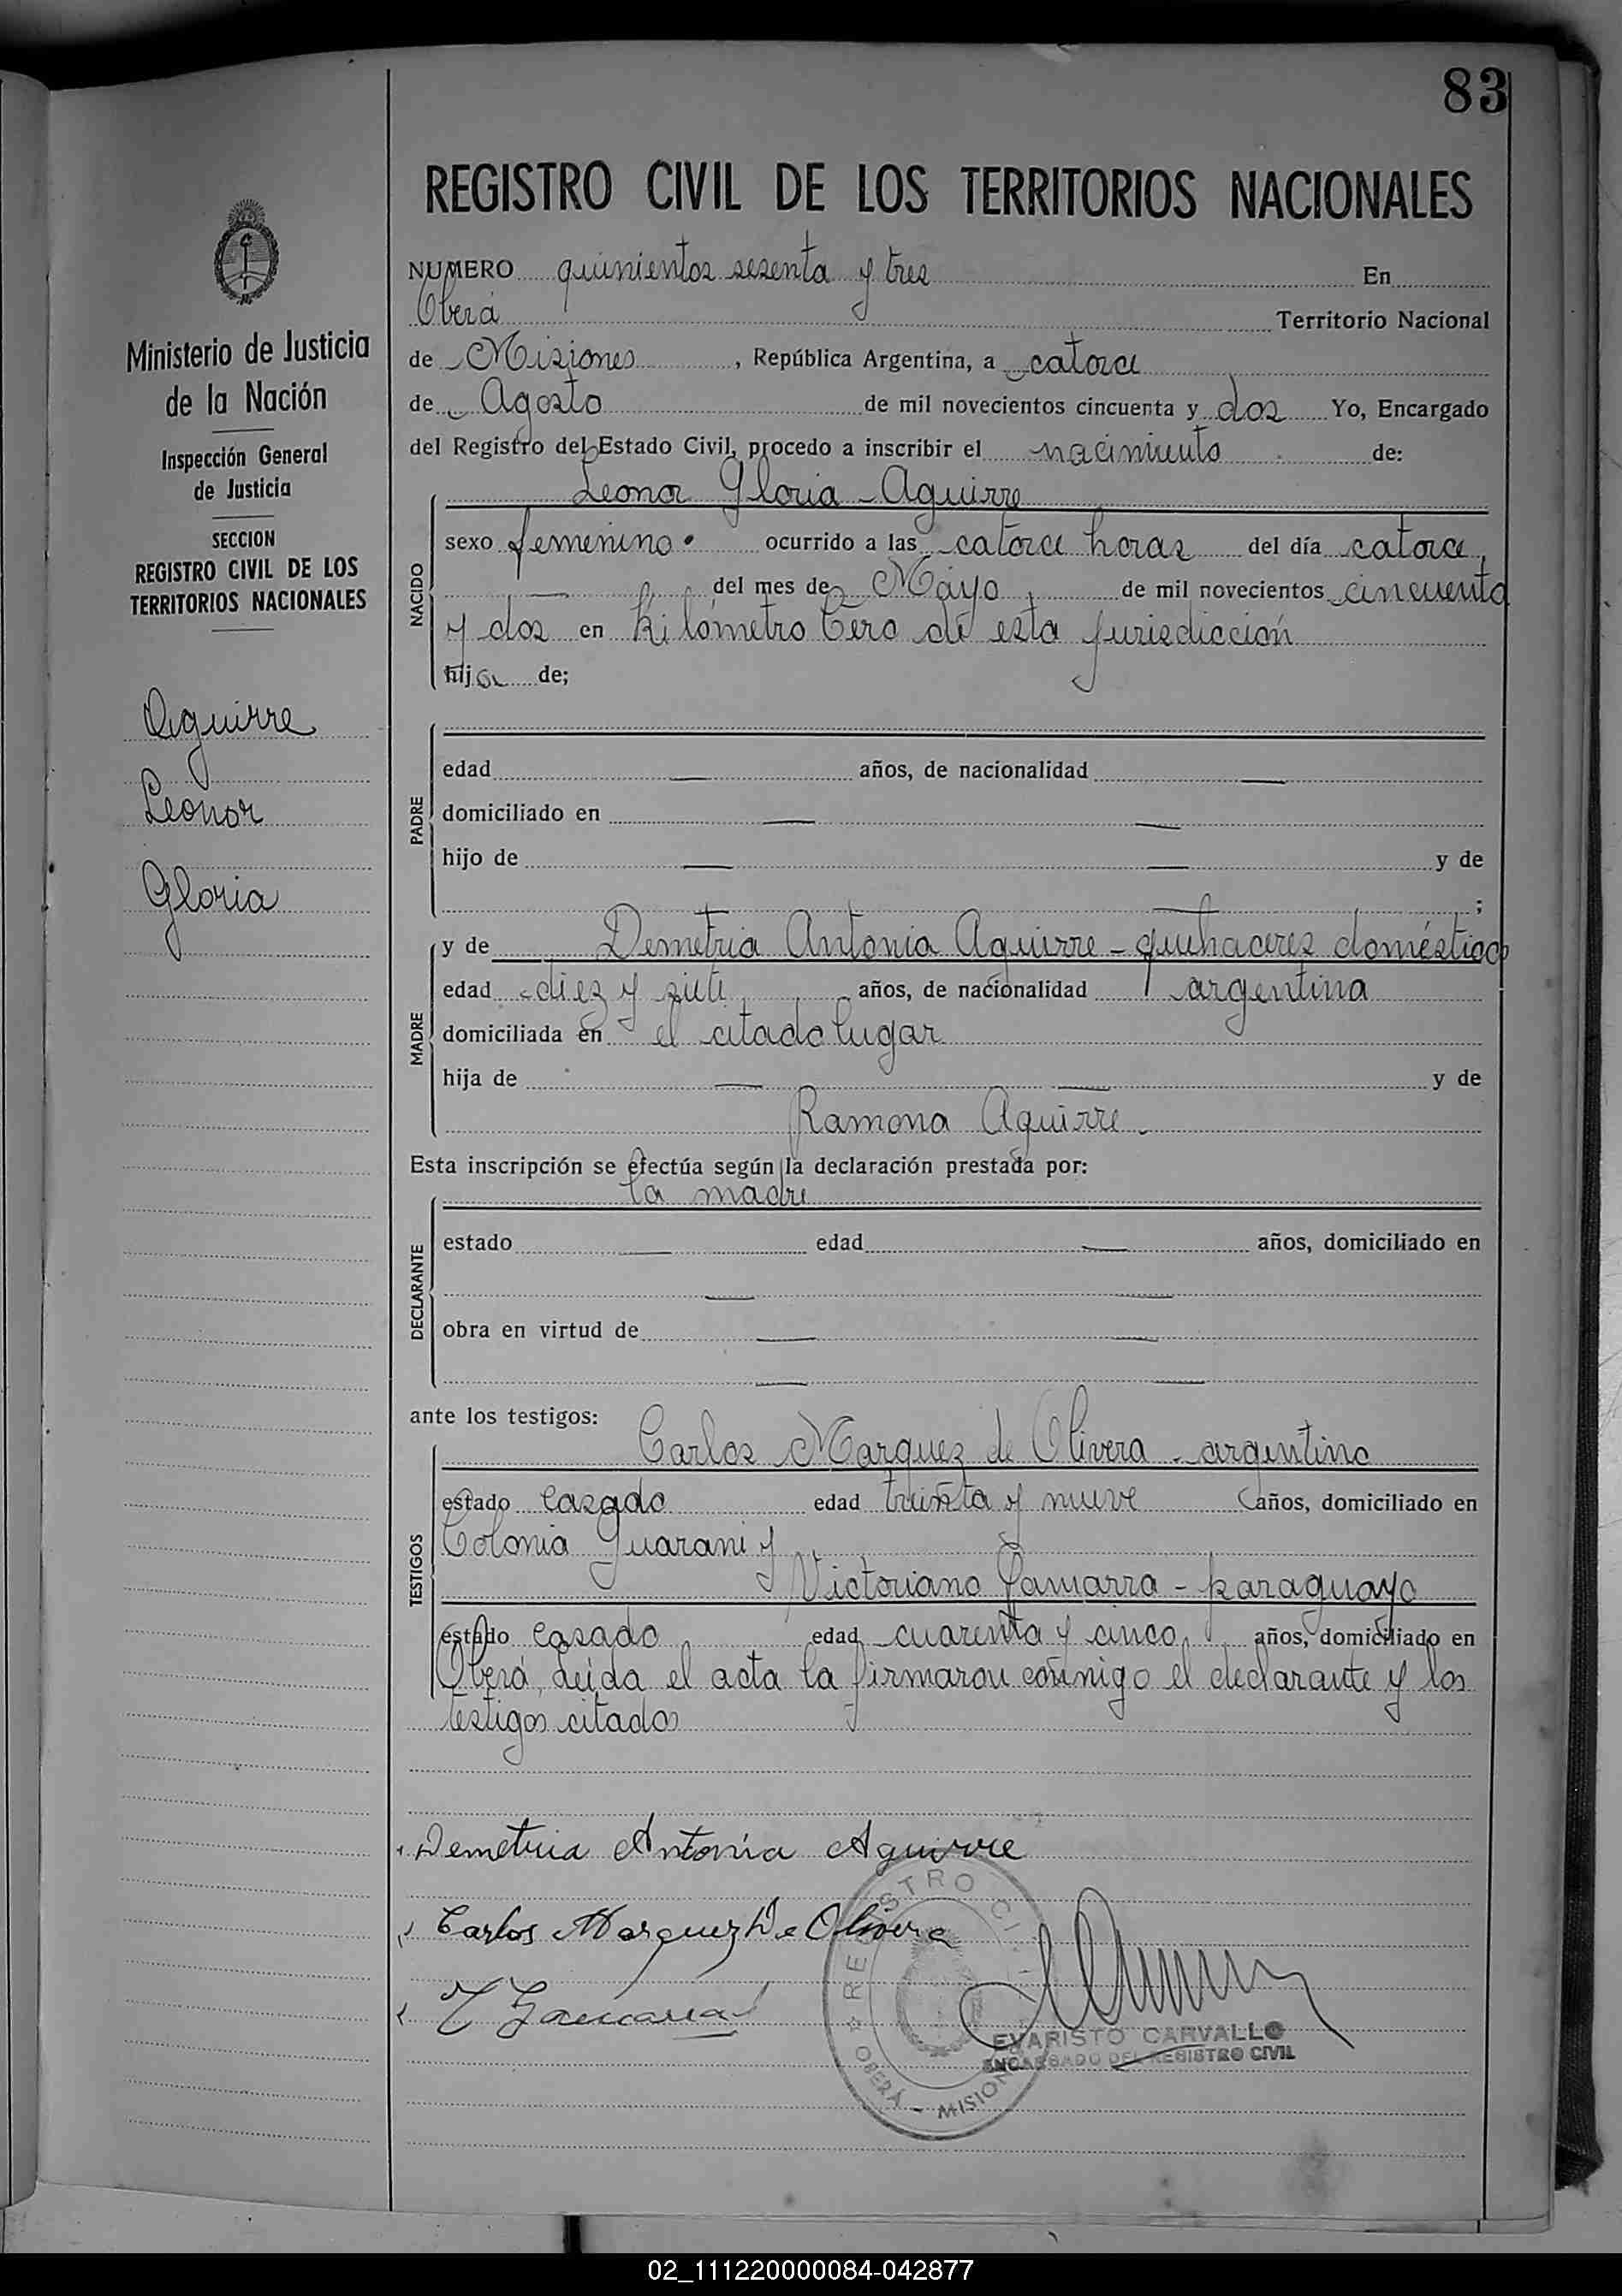 83
REGISTRO CIVIL DE LOS TERRITORIOS NACIONALES
Ministerio de Justicia
de la Nación
Inspección General
de Justicia
SECCION
REGISTRO CIVIL DE LOS
TERRITORIOS NACIONALES
Aguirre
Leonor
Gloria
NUMERO quinientos sesenta y tres En
Oberá Territorio Nacional
de Misiones, República Argentina, a catorce
de Agosto de mil novecientos cincuenta y dos Yo, Encargado
del Registro del Estado Civil, procedo a inscribir el nacimiento de:
NACIDO
Leonor Gloria - Aguirre
sexo femenino. ocurrido a las catorce horas del día catorce,
— del mes de Mayo de mil novecientos cincuenta
y dos en Kilómetro Cero de esta jurisdicción
hija de;
PADRE
edad — años, de nacionalidad —
domiciliado en — —
hijo de — — y de
— ;
MADRE
y de Demetria Antonia Aguirre - quehaceres domésticos
edad diez y siete años, de nacionalidad argentina
domiciliada en el citado lugar
hija de — — y de
Ramona Aguirre.
Esta inscripción se efectúa según la declaración prestada por:
DECLARANTE
la madre
estado — edad — años, domiciliado en
— —
obra en virtud de — —
— —
ante los testigos:
TESTIGOS
Carlos Marquez de Olivera - argentino
estado casado edad treinta y nueve años, domiciliado en
Colonia Guarani y
Victoriano Gamarra - paraguayo
estado casado edad cuarenta y cinco años, domiciliado en
Oberá, Leida el acta la firmaron conmigo el declarante y los
testigos citados
Demetria Antonia Aguirre
Carlos Marquez De Olivera
Gamarra
REGISTRO CIVIL
OBERÁ - MISIONES
EVARISTO CARVALLO
ENCARGADO DEL REGISTRO CIVIL
02_111220000084-042877